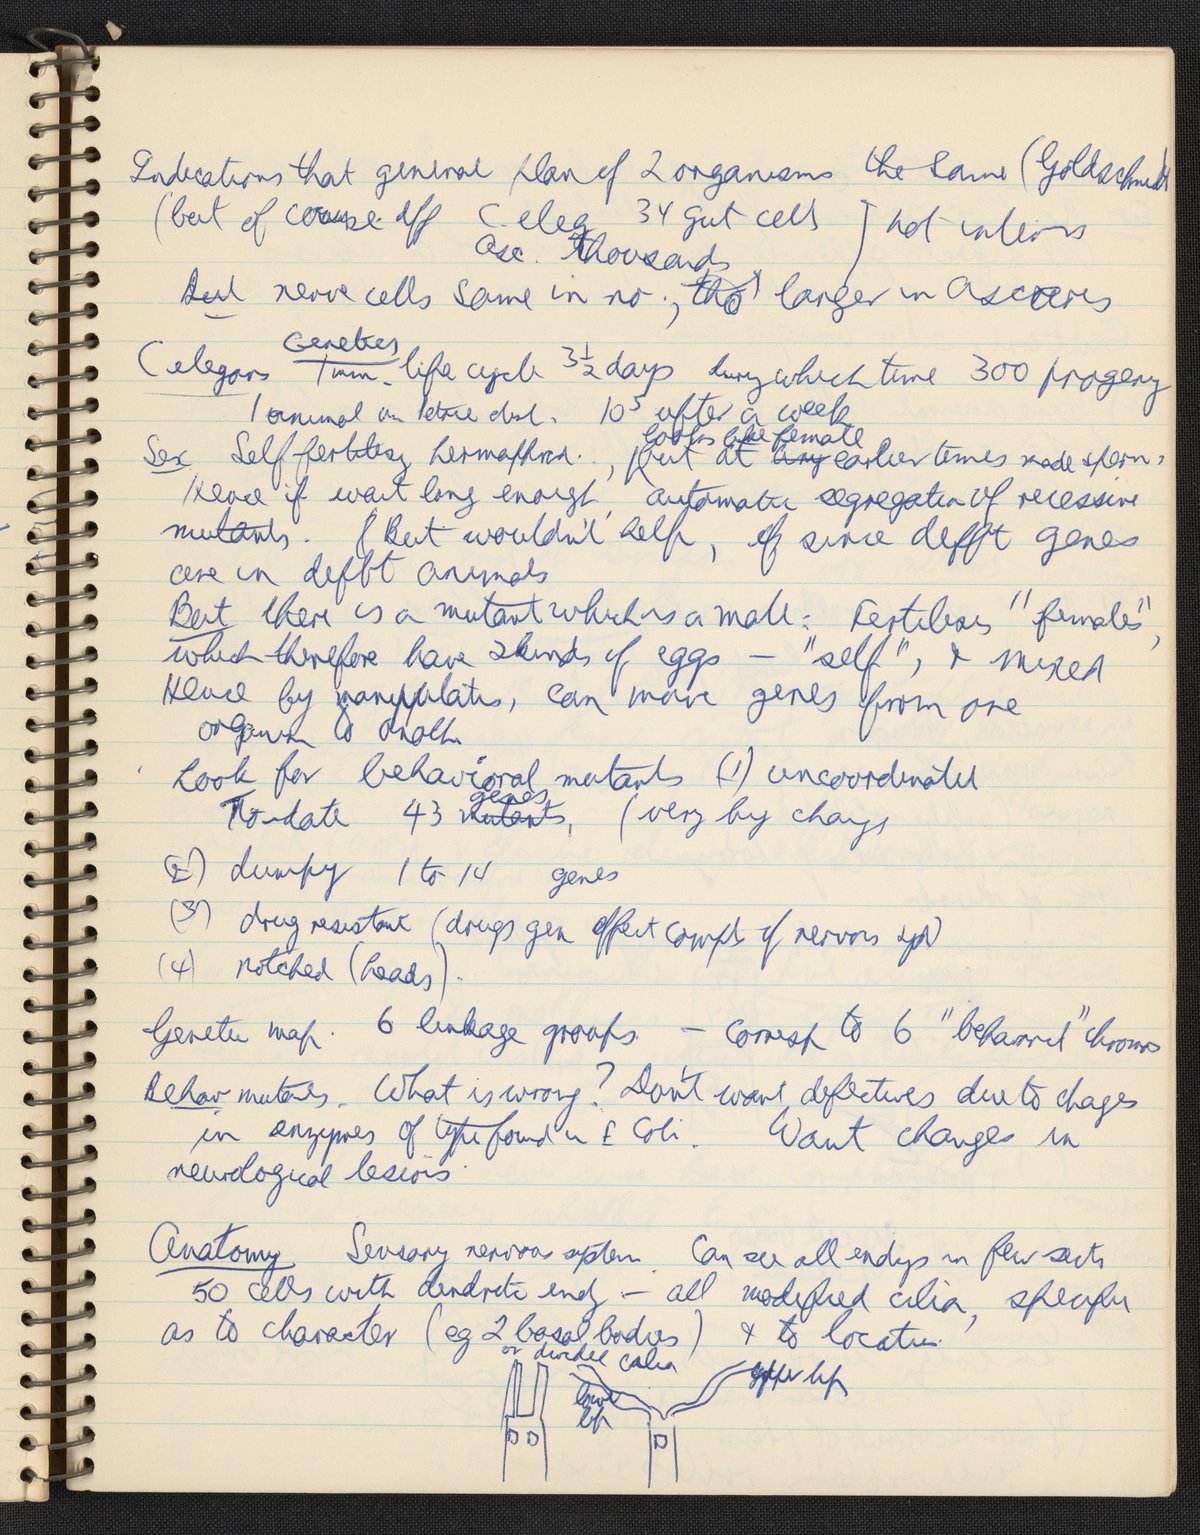 Indications that general plan of 2 organisms the same (Goldschmidt
(but of course diff C eleg 34 gut cells ] not
Asc. thousands
But nerve cells same in no., tho' larger in Ascaris
Genetics
C elegans 1 mm. life cycle 3½ days during which time 300 progeny
1 animal on Petri dish. 10⁵ after a week
looks like female
Sex Self fertilizing hermaphrod., but at earlier times made sperm.
Hence if wait long enough, automatic segregation of recessive
mutants. (But wouldn't help, if since defft genes
are in defft animals
But there is a mutant which is a male: Fertilises "females",
which therefore have 2 kinds of eggs — "self", & mixed
Hence by manipulation, can move genes from one
organism to another
Look for behavioral mutants (1) uncoordinated
genes
To-date 43 mutants, (very by
(2) dumpy 1 to 14 genes
(3) drug resistant (drugs gen effect compts of nervous syst)
(4) notched (heads).
Genetic map. 6 linkage groups — corresp to 6 chroms
Behav mutants. What is wrong? Don't want defectives due to chages
in enzymes of type found in E Coli. Want changes in
neurological lesions.
Anatomy Sensory nervous system. Can see all endings in few sects
50 cells with dendrite endg — all modified cilia, specific
as to character (eg 2 basal bodies) & to location.
or divided cilia
lower
lip
upper lip